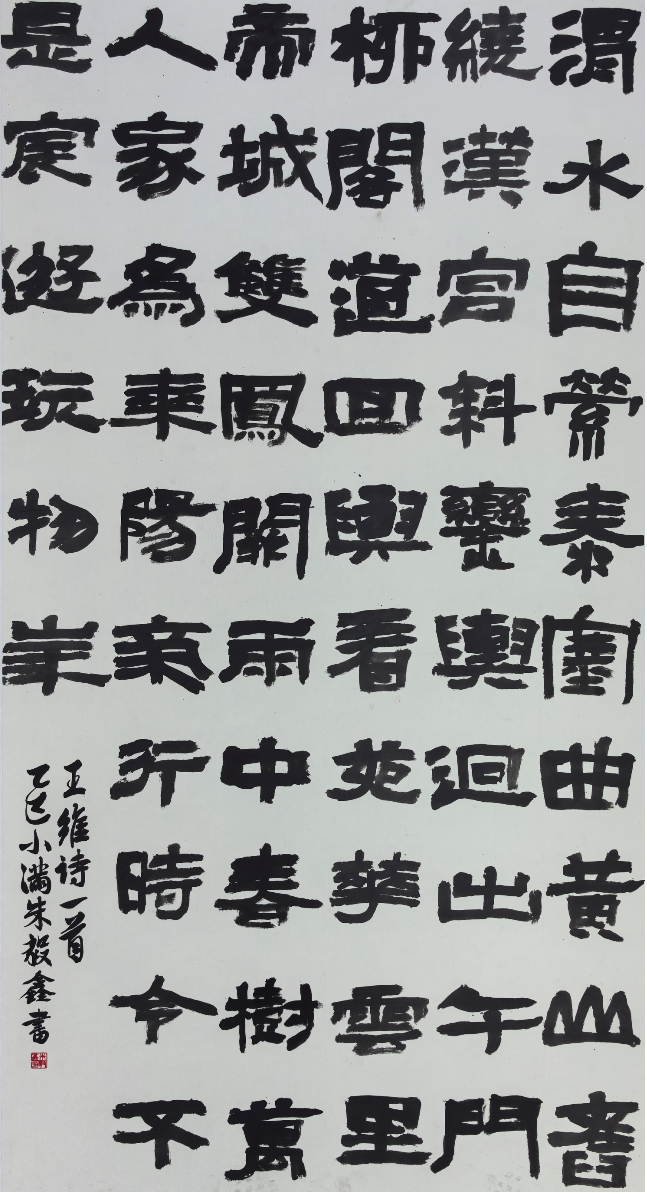 渭水自縈秦塞曲黃山舊
繞漢宮斜鑾輿迥出午門
柳閣道回輿看苑華雲里
帝城雙鳳闕雨中春樹萬
人家為乘陽氣行時令不
是宸遊玩物華
王維诗一首
乙巳小滿朱毅鑫書